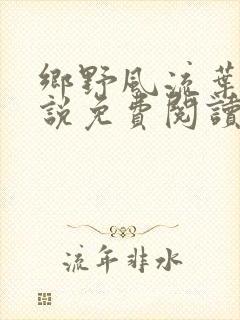 鄉野風流葉
說免費閱讀
流年非水